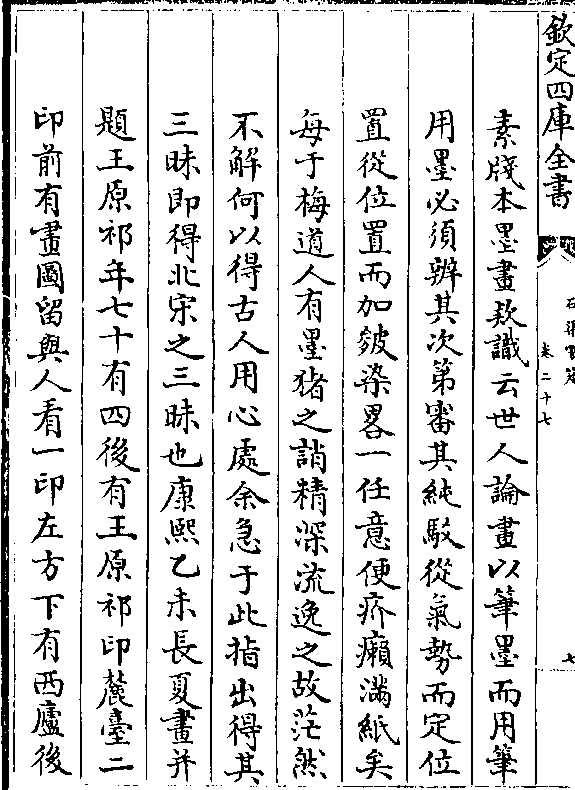 欽定四庫全書
石渠寶笈
卷二十七
七
素牋本墨畫款識云世人論畫以筆墨而用筆
用墨必須辨其次第審其純駁從氣勢而定位
置從位置而加皴染畧一任意便疥癩滿紙矣
每于梅道人有墨猪之誚精深流逸之故茫然
不解何以得古人用心處余急于此指出得其
三昧即得北宋之三昧也康熙乙未長夏畫并
題王原祁年七十有四後有王原祁印麓臺二
印前有畫圖留與人看一印左方下有西廬後